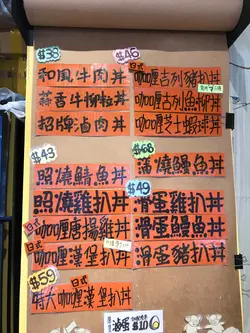 $38
和風牛肉丼
蒜香牛柳粒丼
招牌滷肉丼
$46
咖喱吉列豬扒丼
咖喱吉列魚柳丼
咖喱芝士蝦球丼
$43
照燒鰻魚丼
照燒雞扒丼
日式
咖喱唐揚雞丼
日式
咖喱漢堡扒丼
$68
蒲燒鰻魚丼
$49
滑蛋雞扒丼
滑蛋鰻魚丼
滑蛋豬扒丼
$59
日式
特大咖喱漢堡扒丼
滷蛋
$10